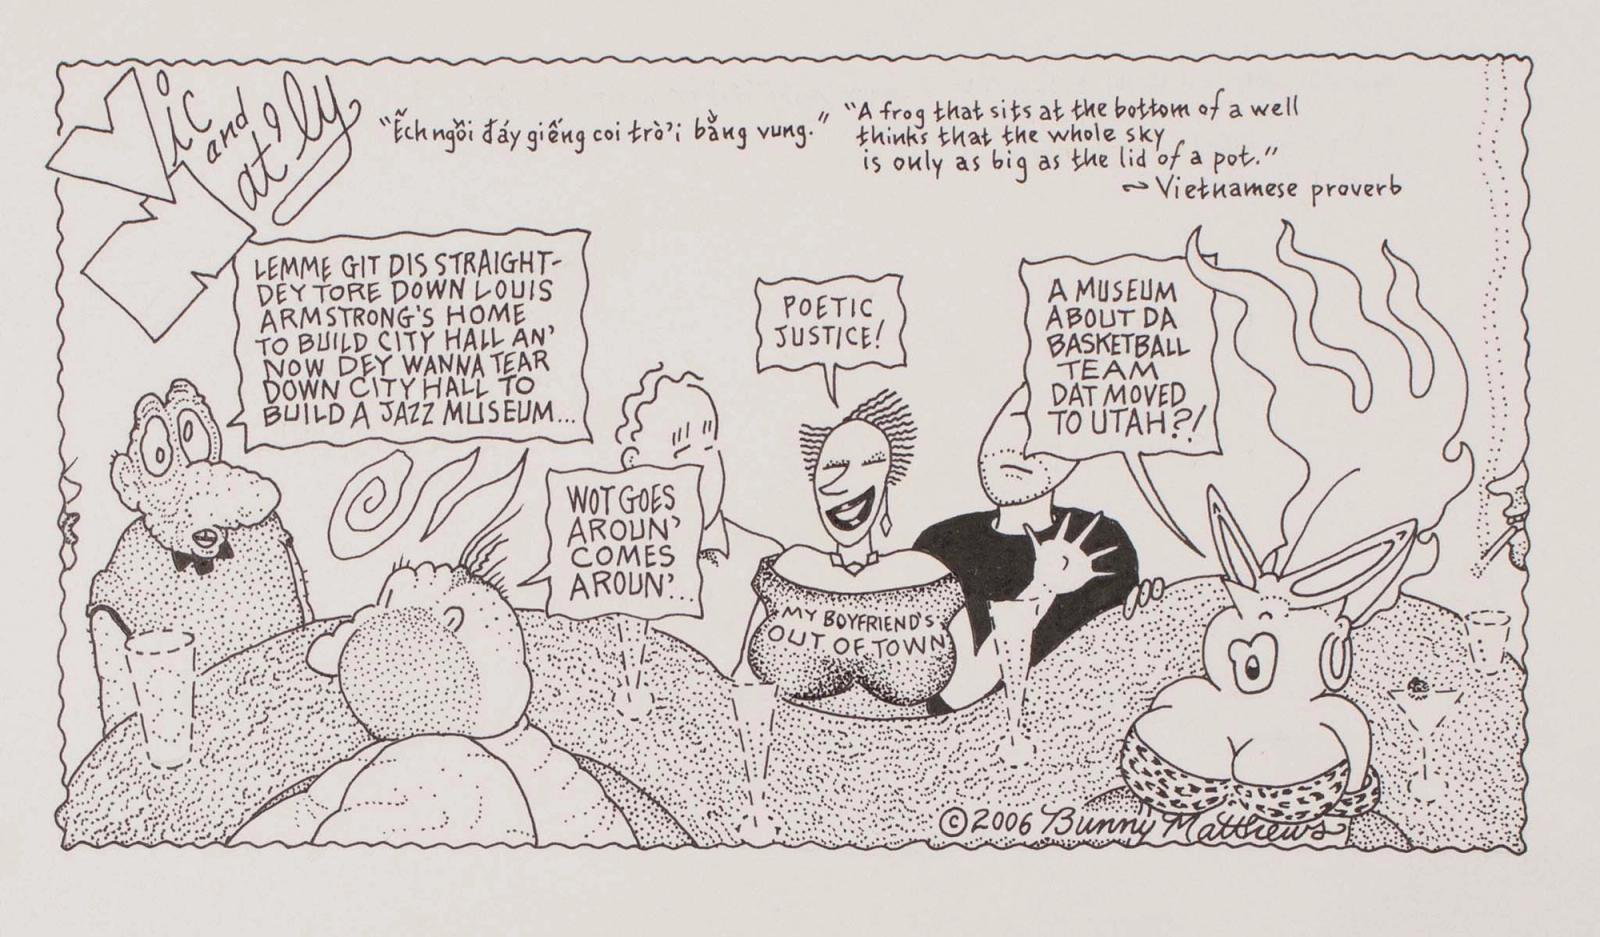 Vic
and
Nat'ly
"Ếch ngồi đáy giếng coi trờ'i bằng vung."
"A frog that sits at the bottom of a well
thinks that the whole sky
is only as big as the lid of a pot."
~ Vietnamese proverb
LEMME GIT DIS STRAIGHT-
DEY TORE DOWN LOUIS
ARMSTRONG'S HOME
TO BUILD CITY HALL AN'
NOW DEY WANNA TEAR
DOWN CITY HALL TO
BUILD A JAZZ MUSEUM...
WOT GOES
AROUN'
COMES
AROUN'...
POETIC
JUSTICE!
MY BOYFRIEND'S
OUT OF TOWN
A MUSEUM
ABOUT DA
BASKETBALL
TEAM
DAT MOVED
TO UTAH?!
©2006 Bunny Matthews